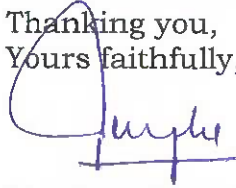 Thanking you,
Yours faithfully,